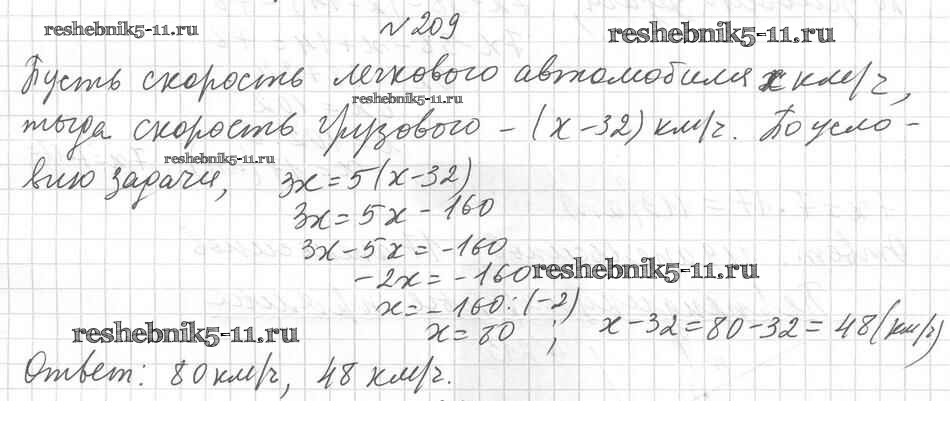 reshebnik5-11.ru
№ 209
reshebnik5-11.ru
Пусть скорость легкового автомобиля x км/ч,
reshebnik5-11.ru
тогда скорость грузового – (x-32) км/ч. По усло-
reshebnik5-11.ru
вию задачи, 3x=5(x-32)
3x=5x-160
3x-5x=-160
-2x=-160
reshebnik5-11.ru
x=-160:(-2)
x=80 ; x-32=80-32=48(км/ч)
reshebnik5-11.ru
Ответ: 80 км/ч, 48 км/ч.